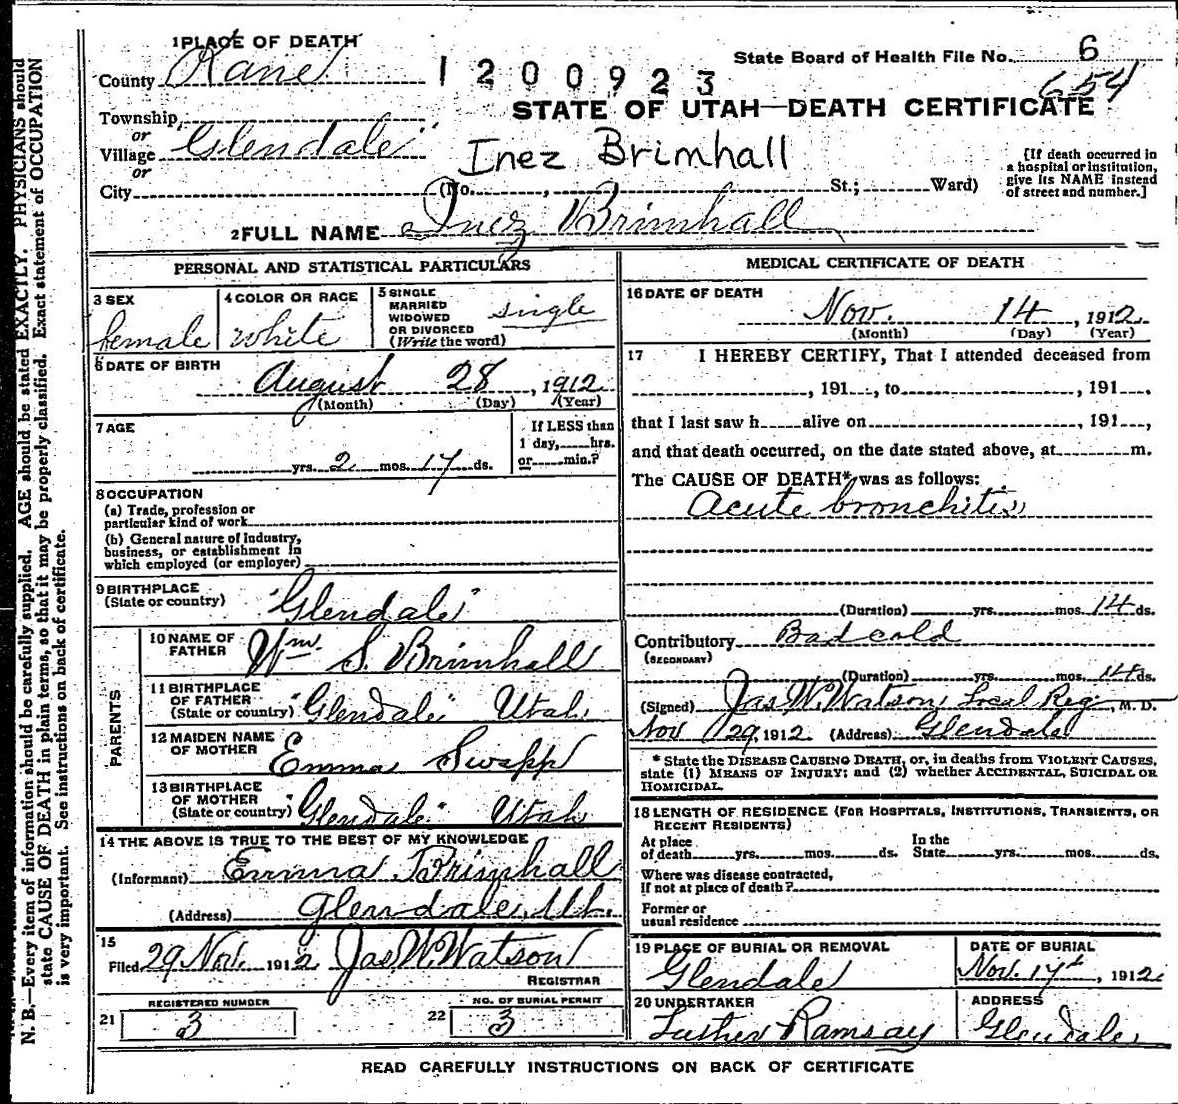 N. B.—Every item of information should be carefully supplied. AGE should be stated EXACTLY. PHYSICIANS should
state CAUSE OF DEATH in plain terms, so that it may be properly classified. Exact statement of OCCUPATION
is very important. See instructions on back of certificate.
1 PLACE OF DEATH
County Kane
1200923
State Board of Health File No. 6
654
STATE OF UTAH—DEATH CERTIFICATE
Township
or
Village "Glendale"
or
City
Inez Brimhall
(No. , St.; Ward)
[If death occurred in
a hospital or institution,
give its NAME instead
of street and number.]
2 FULL NAME Inez Brimhall
PERSONAL AND STATISTICAL PARTICULARS
3 SEX
female
4 COLOR OR RACE
white
5 SINGLE
MARRIED
WIDOWED
OR DIVORCED
(Write the word)
single
6 DATE OF BIRTH
August 28, 1912
(Month) (Day) (Year)
7 AGE
yrs. 2 mos. 17 ds.
If LESS than
1 day, hrs.
or min.?
8 OCCUPATION
(a) Trade, profession or
particular kind of work
(b) General nature of industry,
business, or establishment in
which employed (or employer)
9 BIRTHPLACE
(State or country) "Glendale"
PARENTS
10 NAME OF
FATHER Wm. S. Brimhall
11 BIRTHPLACE
OF FATHER
(State or country) "Glendale" Utah
12 MAIDEN NAME
OF MOTHER Emma Swapp
13 BIRTHPLACE
OF MOTHER
(State or country) "Glendale" Utah
14 THE ABOVE IS TRUE TO THE BEST OF MY KNOWLEDGE
(Informant) Emma Brimhall
(Address) Glendale, Ut.
15
Filed 29 Nov. 1912 Jas W. Watson
REGISTRAR
REGISTERED NUMBER
21 3
NO. OF BURIAL PERMIT
22 3
MEDICAL CERTIFICATE OF DEATH
16 DATE OF DEATH
Nov. 14, 1912
(Month) (Day) (Year)
17 I HEREBY CERTIFY, That I attended deceased from
, 191 , to , 191 ,
that I last saw h alive on , 191 ,
and that death occurred, on the date stated above, at m.
The CAUSE OF DEATH* was as follows:
Acute bronchitis
(Duration) yrs. mos. 14 ds.
Contributory Bad cold
(SECONDARY)
(Duration) yrs. mos. 14 ds.
(Signed) Jas W. Watson Local Reg., M. D.
Nov 29, 1912 (Address) Glendale
* State the DISEASE CAUSING DEATH, or, in deaths from VIOLENT CAUSES,
state (1) MEANS OF INJURY; and (2) whether ACCIDENTAL, SUICIDAL OR
HOMICIDAL.
18 LENGTH OF RESIDENCE (FOR HOSPITALS, INSTITUTIONS, TRANSIENTS, OR
RECENT RESIDENTS)
At place
of death yrs. mos. ds.
In the
State yrs. mos. ds.
Where was disease contracted,
If not at place of death?
Former or
usual residence
19 PLACE OF BURIAL OR REMOVAL
Glendale
DATE OF BURIAL
Nov. 17th, 1912
20 UNDERTAKER
Luther Ramsay
ADDRESS
Glendale
READ CAREFULLY INSTRUCTIONS ON BACK OF CERTIFICATE